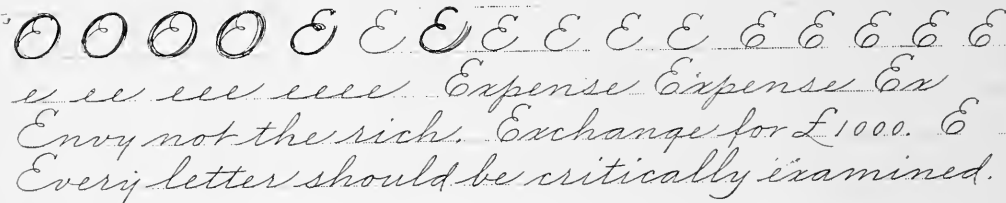 E E E E E E E E E E E E E E E E
e ee eee eeee Expense Expense Ex
Envy not the rich. Exchange for £1000. E
Every letter should be critically examined.